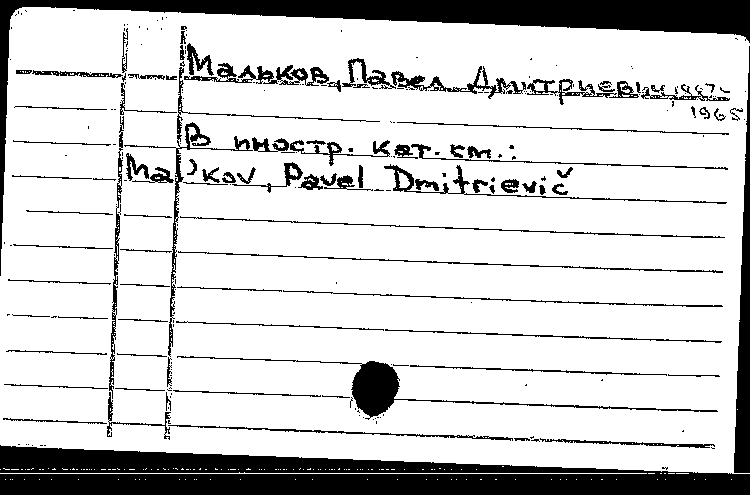 Мальков, Павел Дмитриевич, 1887-
1965
В иностр. кат. см.:
Mal'kov, Pavel Dmitrievič